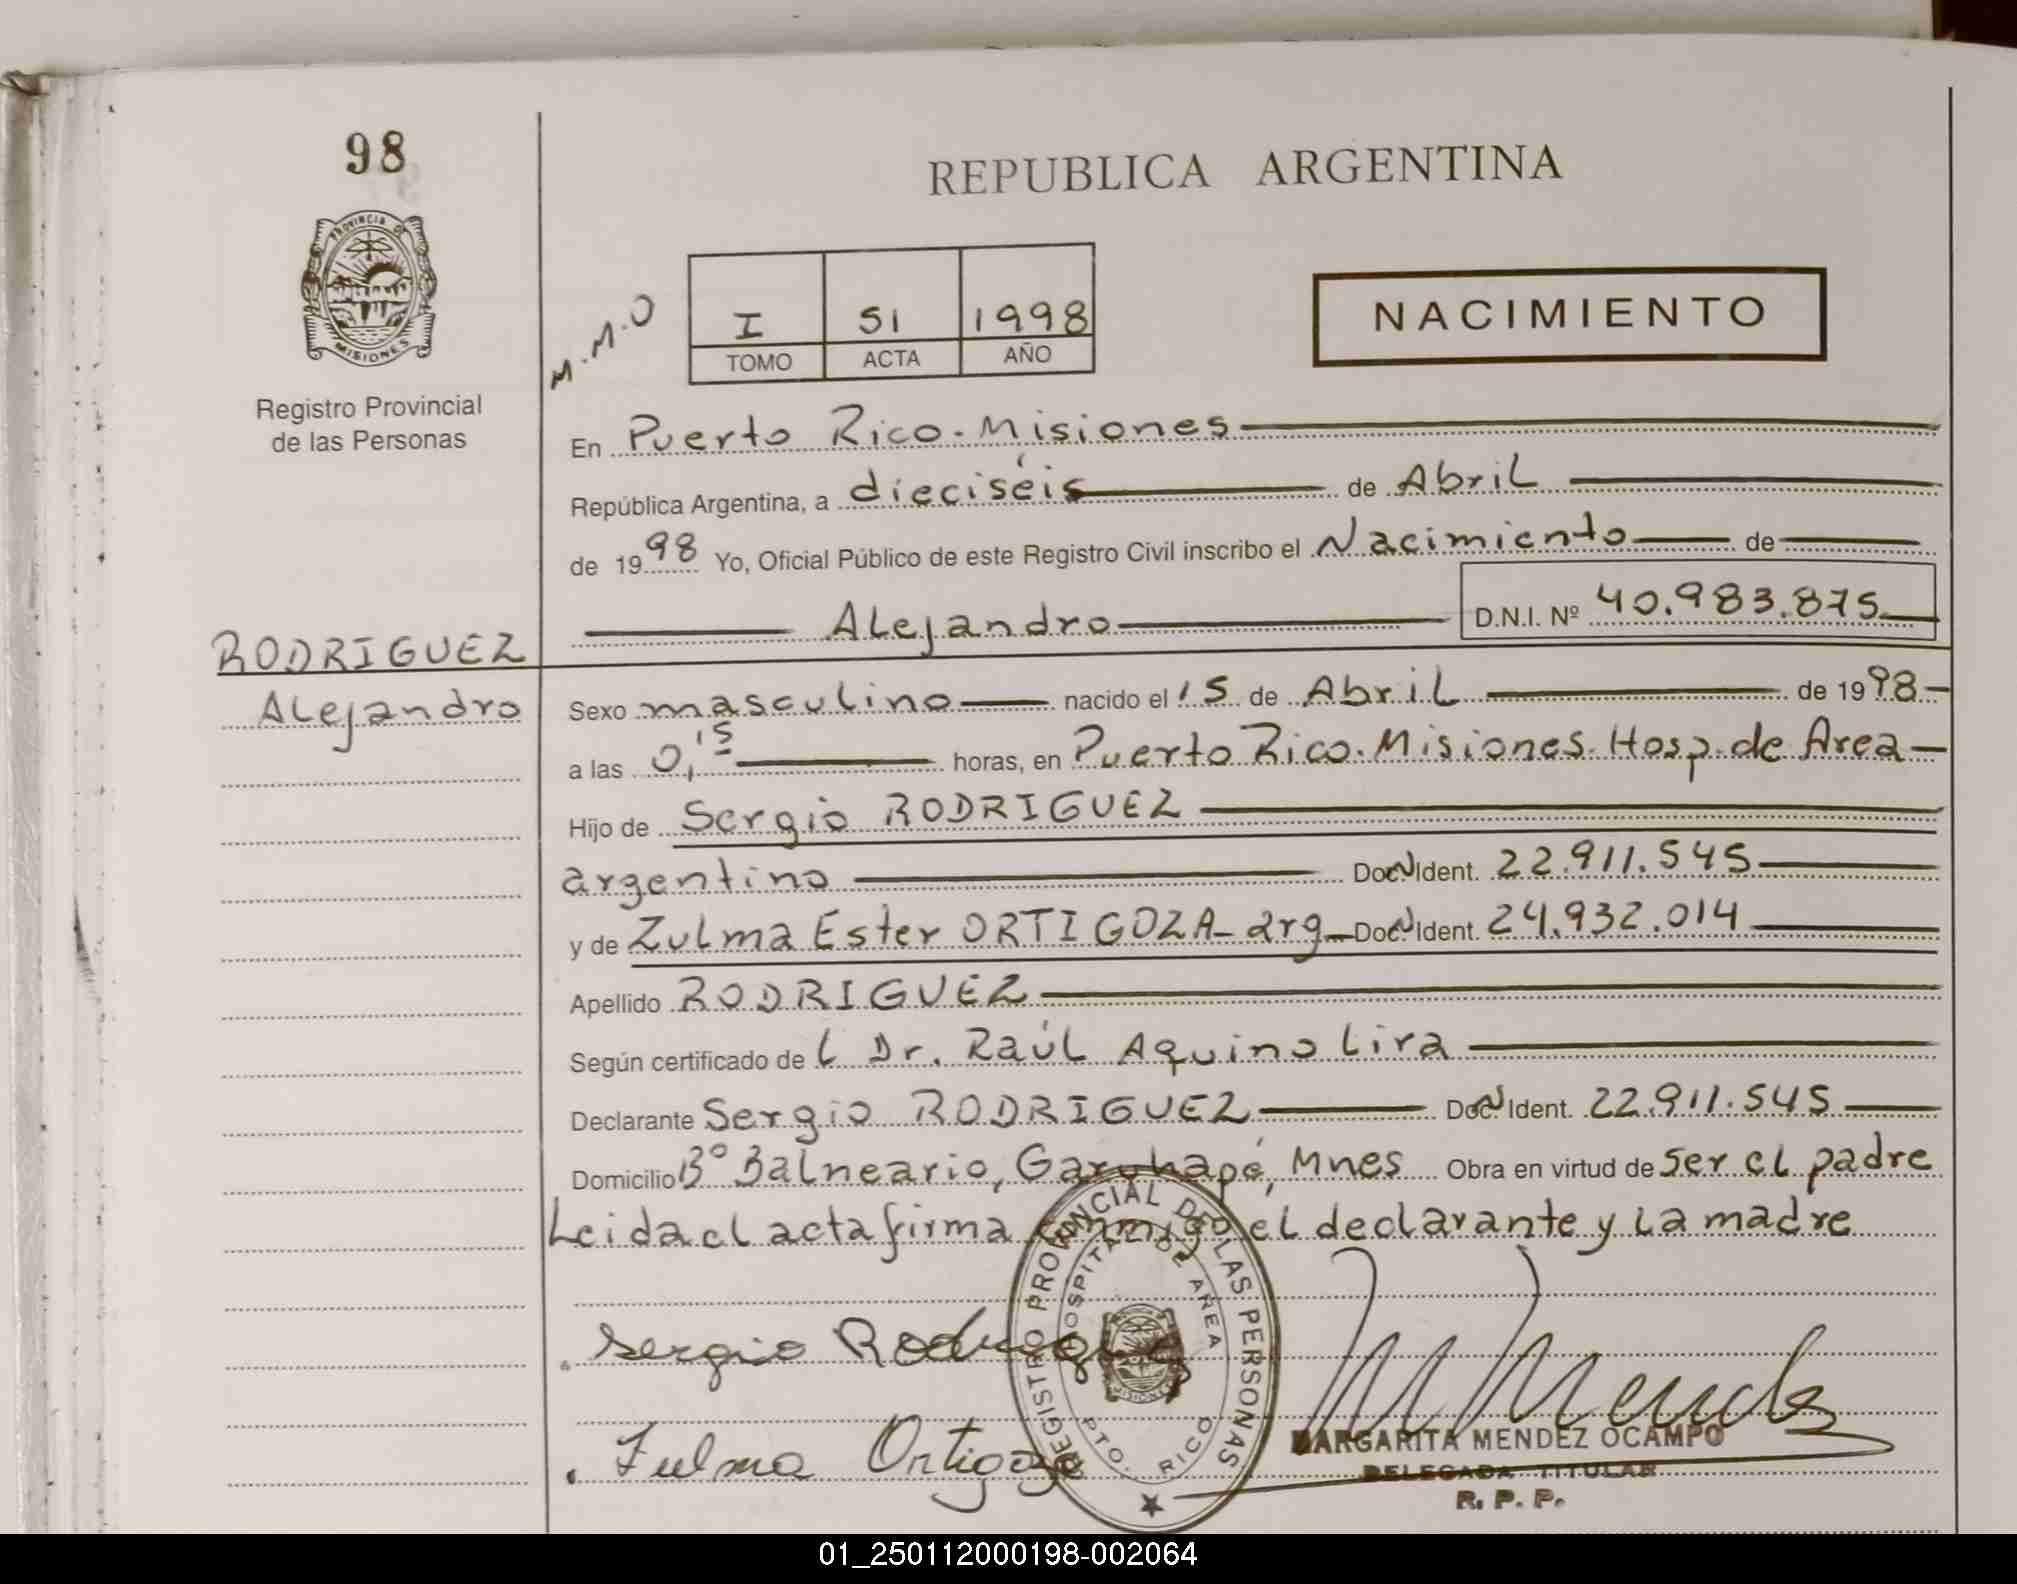 98
REPUBLICA ARGENTINA
PROVINCIA DE
MISIONES
Registro Provincial
de las Personas
M.M.O
I 51 1998
TOMO ACTA AÑO
NACIMIENTO
En Puerto Rico. Misiones
República Argentina, a dieciséis de Abril
de 1998 Yo, Oficial Público de este Registro Civil inscribo el Nacimiento de
Alejandro D.N.I. Nº 40.983.875
RODRIGUEZ
Alejandro
Sexo masculino nacido el 15 de Abril de 1998
a las 0,15 horas, en Puerto Rico. Misiones. Hosp. de Area
Hijo de Sergio RODRIGUEZ
argentino Doc N Ident. 22.911.545
y de Zulma Ester ORTIGOZA - arg - Doc N Ident. 24.932.014
Apellido RODRIGUEZ
Según certificado de l Dr. Raúl Aquino Lira
Declarante Sergio RODRIGUEZ Doc N Ident. 22.911.545
Domicilio Bº Balneario, Garuhapé, Mnes Obra en virtud de ser el padre
Leida el acta firma conmigo el declarante y la madre
REGISTRO PROVINCIAL DE LAS PERSONAS
HOSPITAL DE AREA
MISIONES
PTO. RICO
Sergio Rodriguez
Zulma Ortigoza
M Mendez
MARGARITA MENDEZ OCAMPO
DELEGADA TITULAR
R. P. P.
01_250112000198-002064